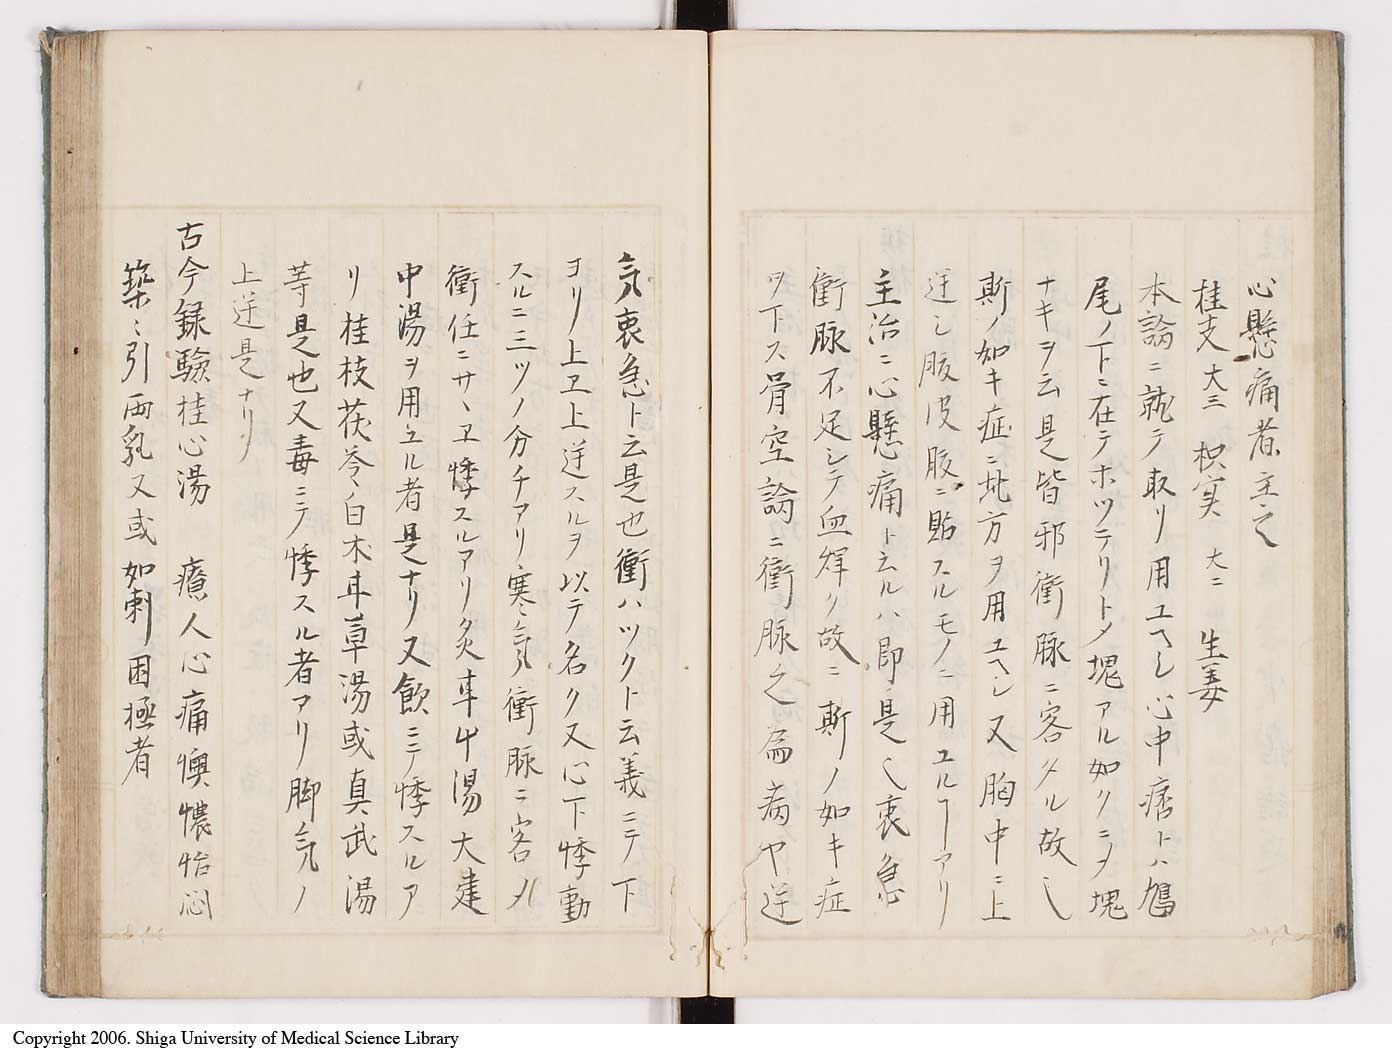 心懸痛者主之
桂支 大三 枳実 大二 生姜
本論ニ就テ取リ用ユヘシ心中痞トハ鳩
尾ノ下ニ在テホツテリトメ塊アル如クニメ塊
ナキヲ云是皆邪衝脉ニ客タル故也
斯ノ如キ症ニ此方ヲ用ユヘシ又胸中ニ上
逆シ腹皮腹ニ貼スルモノニ用ユルヿアリ
主治ニ心懸痛ト云ルハ即是也衷急
衝脉不足シテ血燥ク故ニ斯ノ如キ症
ヲ下ス骨空論ニ衝脉之為病ヤ逆
気衷急ト云是也衝ハツクト云義ニテ下
ヨリ上ヱ上逆スルヲ以テ名ク又心下悸動
スルニ三ツノ分チアリ寒気衝脉ニ客メ
衝任ニサヽヱ悸スルアリ炙 湯大建
中湯ヲ用ユル者是ナリ又飲ミテ悸スルア
リ桂枝茯苓白木甘草湯或真武湯
等是也又毒ミテ悸スル者アリ脚気ノ
上逆是ナリ
古今録驗桂心湯 療人心痛懊憹悁悶
築〻引両乳又或如刺困極者
Copyright 2006. Shiga University of Medical Science Library